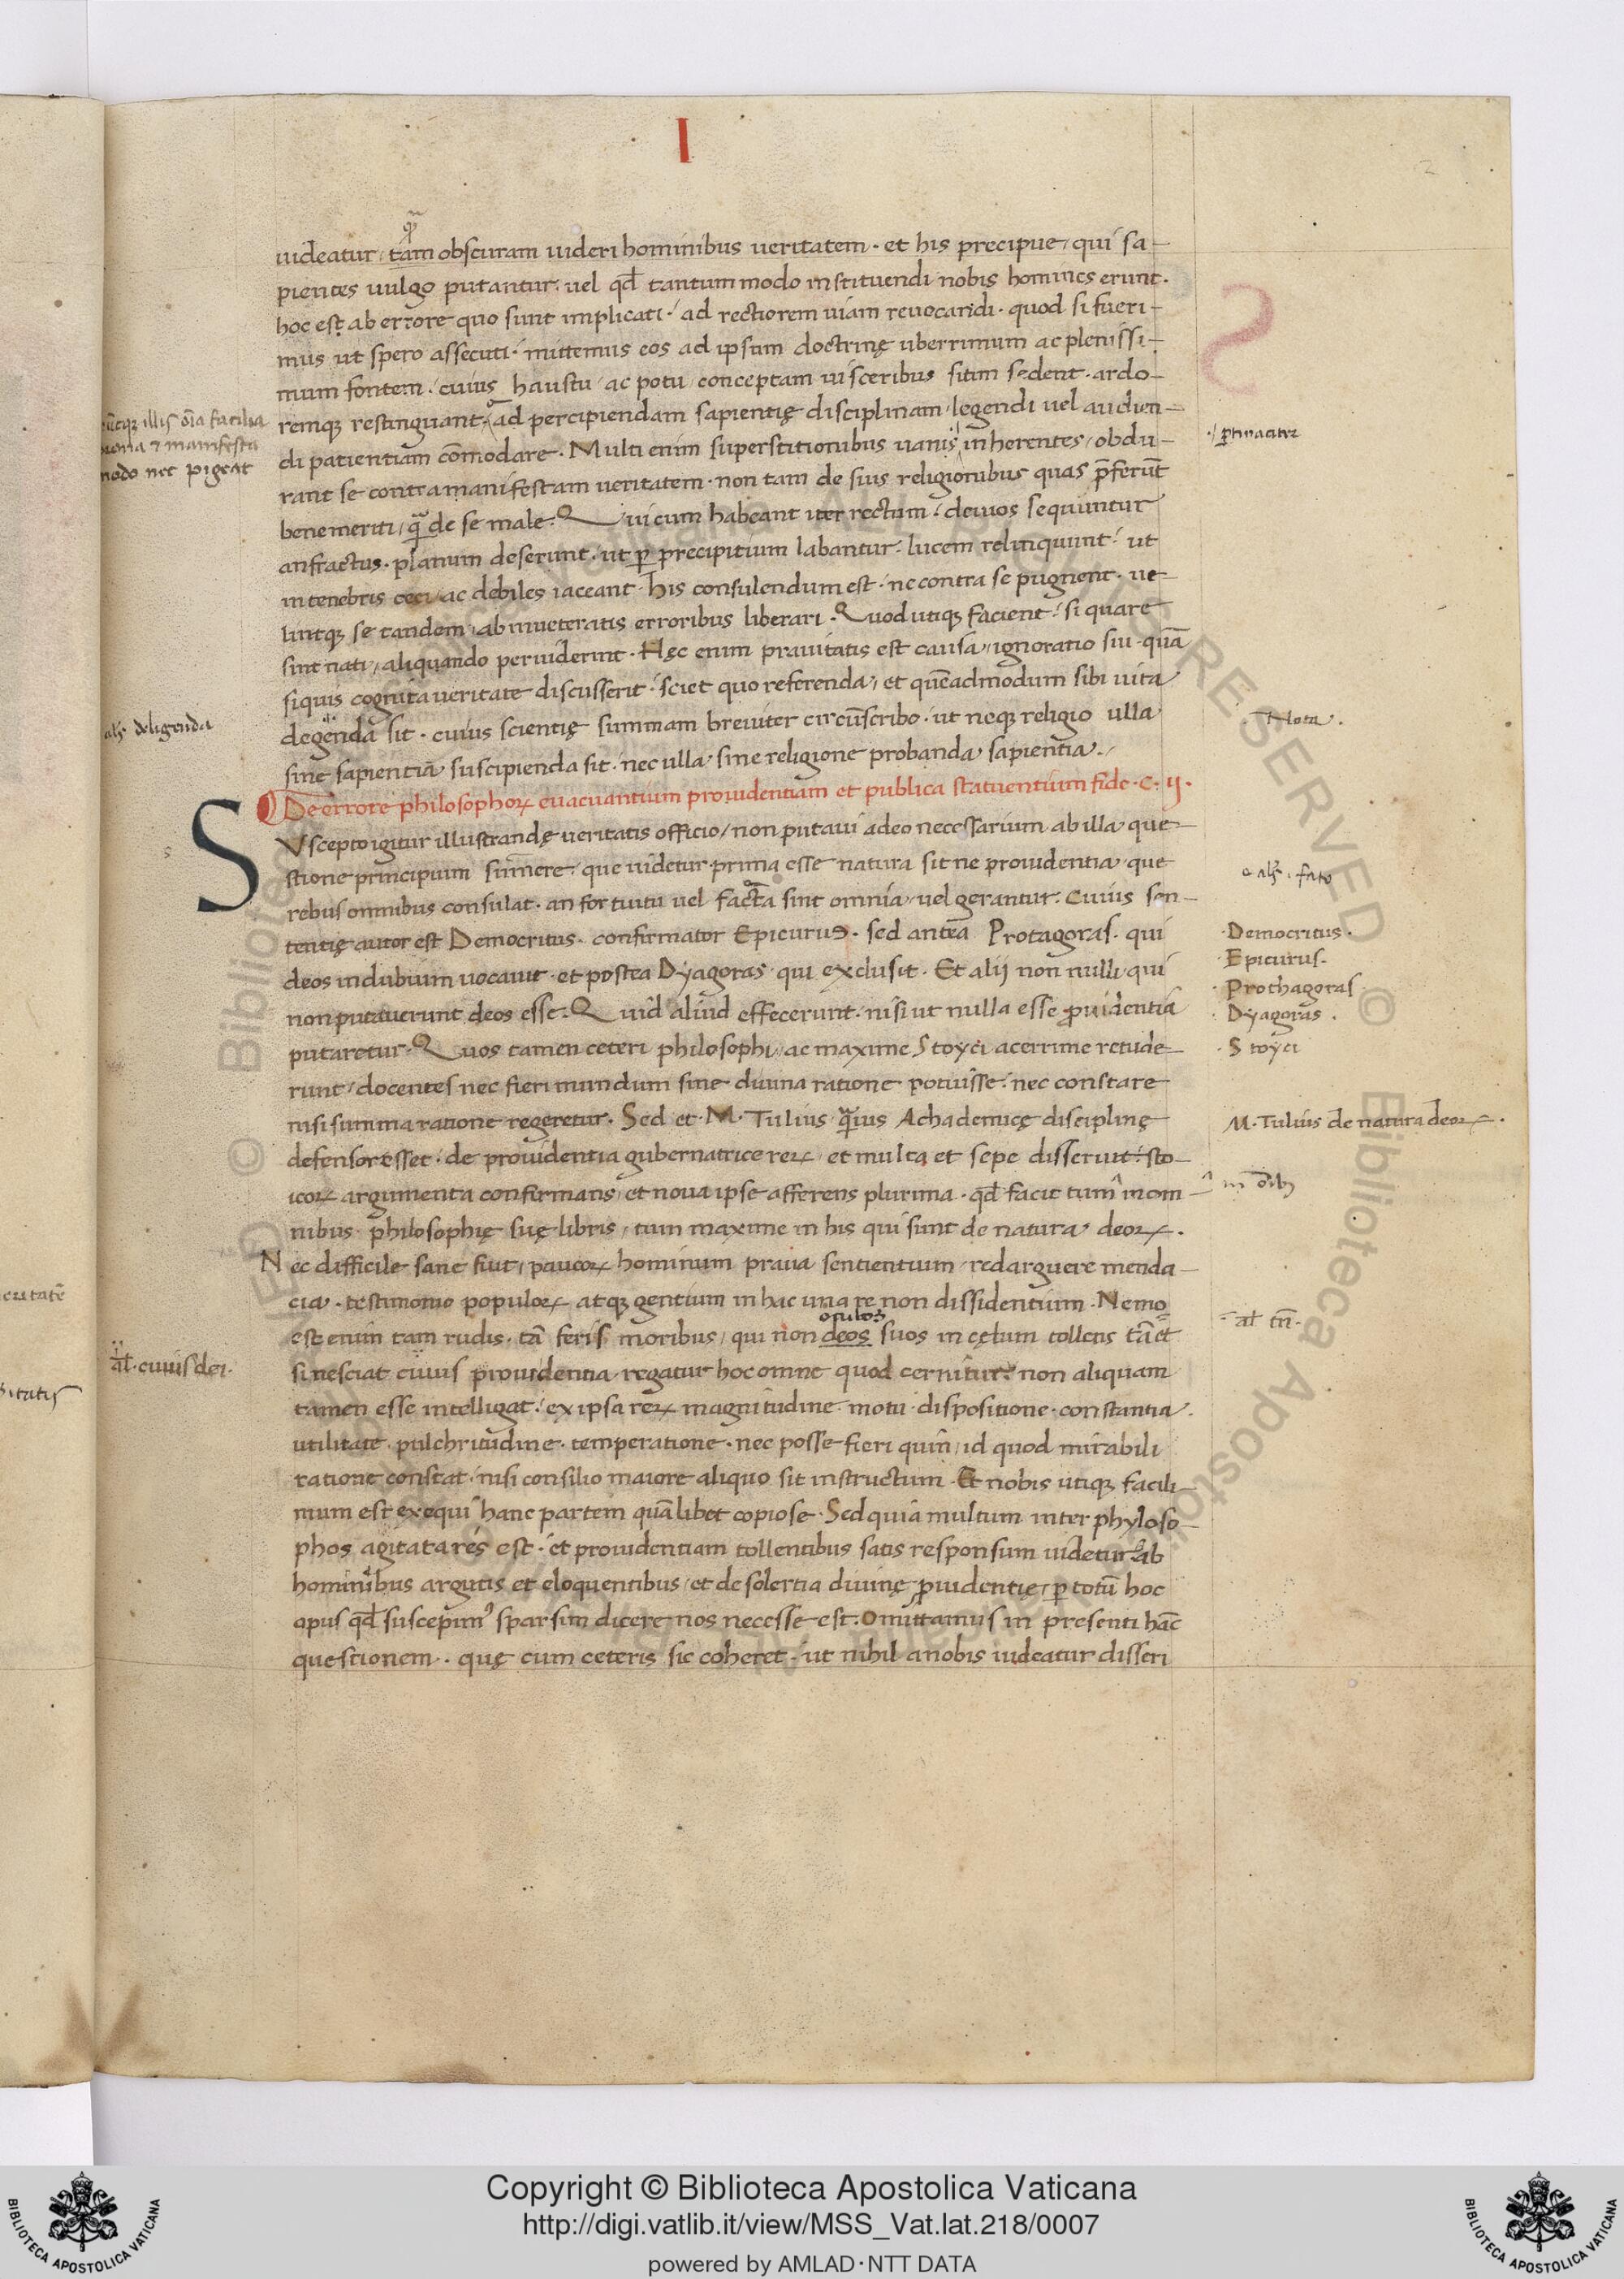 I
2
quā
uideatur, tam obscuram uideri hominibus ueritatem · et his precipue, qui sa-
pientes uulgo putantur · uel qđ tantummodo instituendi nobis homines erunt ·
hoc est ab errore quo sunt implicati · ad rectiorem uiam reuocandi · quod si fueri-
mus ut spero assecuti · mittemus eos ad ipsum doctrinę uberrimum ac plenissi-
mum fontem · cuius haustu ac potu conceptam uisceribus sitim sedent · ardo-
remqꝫ restinguant · ad percipiendam sapientię disciplinam legendi uel audien-
di patientiam cōmodare · Multi enim superstitionibus uanis inherentes, obdu-
rant se contra manifestam ueritatem · non tam de suis religionibus quas p̄ferūt
benemeriti, quā de se male · Qui cum habeant iter rectum · deuios sequuntur
anfractus · planum deserunt · ut ꝑ precipitium labantur · lucem relinquunt · ut
in tenebris ceci, ac debiles iaceant · His consulendum est · ne contra se pugnent · ue-
lintqꝫ se tandem, ab inueteratis erroribus liberari · Quod utiqꝫ facient · si quare
sint nati, aliquando peruiderint · Hęc enim prauitatis est causa, ignoratio sui · quā
siquis cognita ueritate discusserit · sciet quo referenda, et quēadmodum sibi uita
degenda sit · cuius scientię summam breuiter circūscribo · ut neqꝫ religio ulla
sine sapientia suscipienda sit · nec ulla sine religione probanda sapientia ·
De errore philosophoꝝ euacuantium prouidentiam et publica statuentium fide · C · ij ·
SVscepto igitur illustrandę ueritatis officio, non putaui adeo necessarium ab illa que-
stione principium sumere · que uidetur prima esse natura sit ne prouidentia que
rebus omnibus consulat · an fortuitu uel facta sint omnia, uel gerantur · Cuius sen-
tentię autor est Democritus · confirmator Epicurus · sed antea Protagoras · qui
deos in dubium uocauit · et postea Dyagoras qui exclusit · Et alij non nulli qui
non putauerunt deos esse · Quid aliud effecerunt · nisi ut nulla esse ꝓuidentia
putaretur · Quos tamen ceteri philosophi, ac maxime Stoyci acerrime retude-
runt, docentes nec fieri mundum sine diuina ratione potuisse · nec constare
nisi summa ratione regeretur · Sed et · M · Tulius quāuis Achademicę disciplinę
defensor esset · de prouidentia gubernatrice reꝝ et multa et sepe disseruit · sto-
icoꝝ argumenta confirmans, et noua ipse afferens plurima · qđ facit tum in om-
nibus philosophię suę libris, tum maxime in his qui sunt de natura deoꝝ ·
Nec difficile sane fuit, paucoꝝ hominum praua sentientium redarguere menda-
cia · testimonio populoꝝ atqꝫ gentium in hac una re non dissidentium · Nemo
oculos
est enim tam rudis · tā feris moribus, qui non deos suos in cęlum tollens tā et
si nesciat cuius prouidentia regatur hoc omne quod cernitur · non aliquam
tamen esse intelligat · ex ipsa reꝝ magnitudine motu dispositione · constantia ·
utilitate · pulchritudine · temperatione · nec posse fieri quin, id quod mirabili
ratione constat · nisi consilio maiore aliquo sit instructum · Et nobis utiqꝫ facili-
mum est exequi hanc partem quālibet copiose · Sed quia multum inter phyloso-
phos agitata res est · et prouidentiam tollentibus satis responsum uidetur ab
hominibus argutis et eloquentibus, et de solertia diuinę ꝓuidentię, ꝑ totū hoc
opus qđ suscepimꝰ sparsim dicere nos necesse est · Omittamus in presenti hāc
questionem · quę cum ceteris sic coheret · ut nihil a nobis uideatur disseri
illis oīa facilia
manifesta
modo nec pigeat
deligenda
al · cuius dei ·
ꝑtinaciter
Nota ·
fato
· Democritus ·
· Epicurus ·
· Prothagoras
· Dyagoras ·
· Stoyci
M · Tulius de natura deoꝝ ·
in oībꝫ
al tn̄ ·
Copyright © Biblioteca Apostolica Vaticana
http://digi.vatlib.it/view/MSS_Vat.lat.218/0007
powered by AMLAD·NTT DATA
BIBLIOTECA APOSTOLICA VATICANA
BIBLIOTECA APOSTOLICA VATICANA